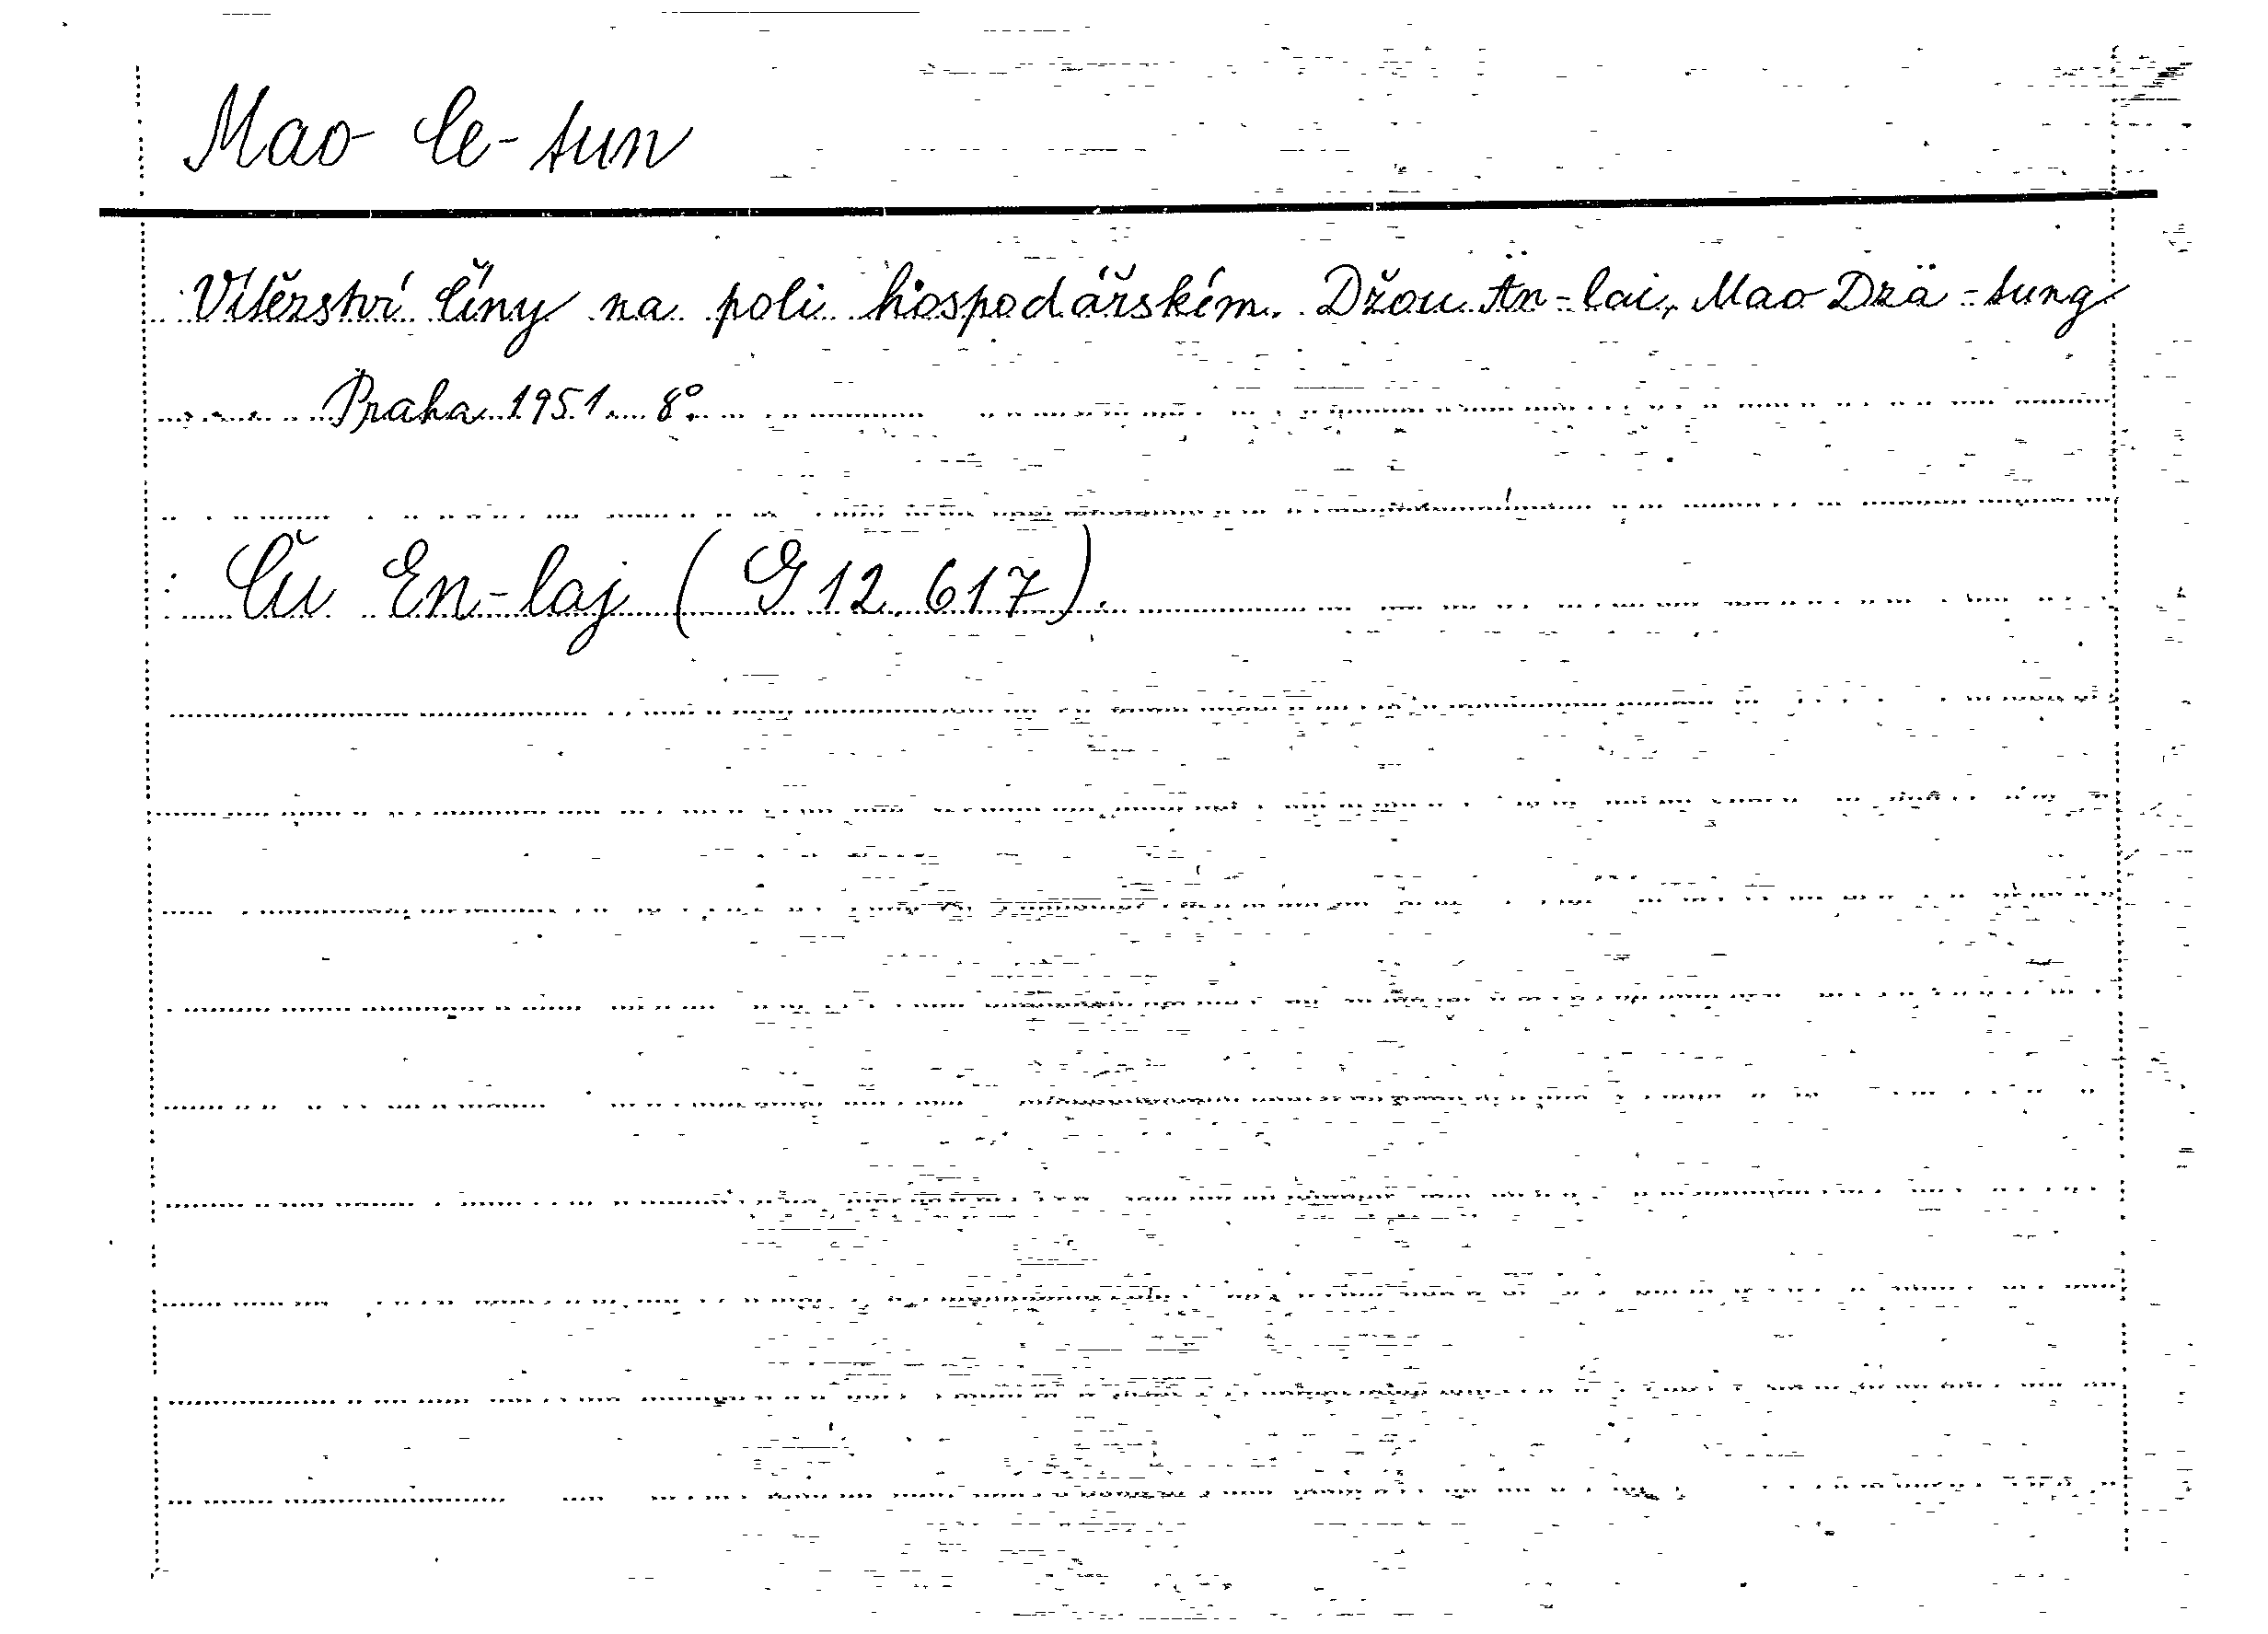 Mao Ce-tun
Vítězství Číny na poli hospodářském. Džou Än-lai, Mao Dzä-tung
Praha 1951. 8°.
Ču En-laj (G 12.617).